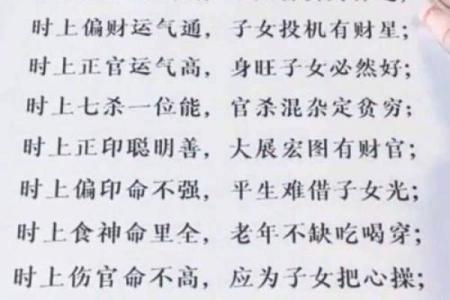 时上偏财运气通，子女投机有财星；
时上正官运气高，身旺子女必然好；
时上七杀一位能，官杀混杂定贫穷；
时上正印聪明善，大展宏图有财官；
时上偏印命不强，平生难借子女光；
时上食神命里全，老年不缺吃喝穿；
时上伤官命不高，应为子女把心操；